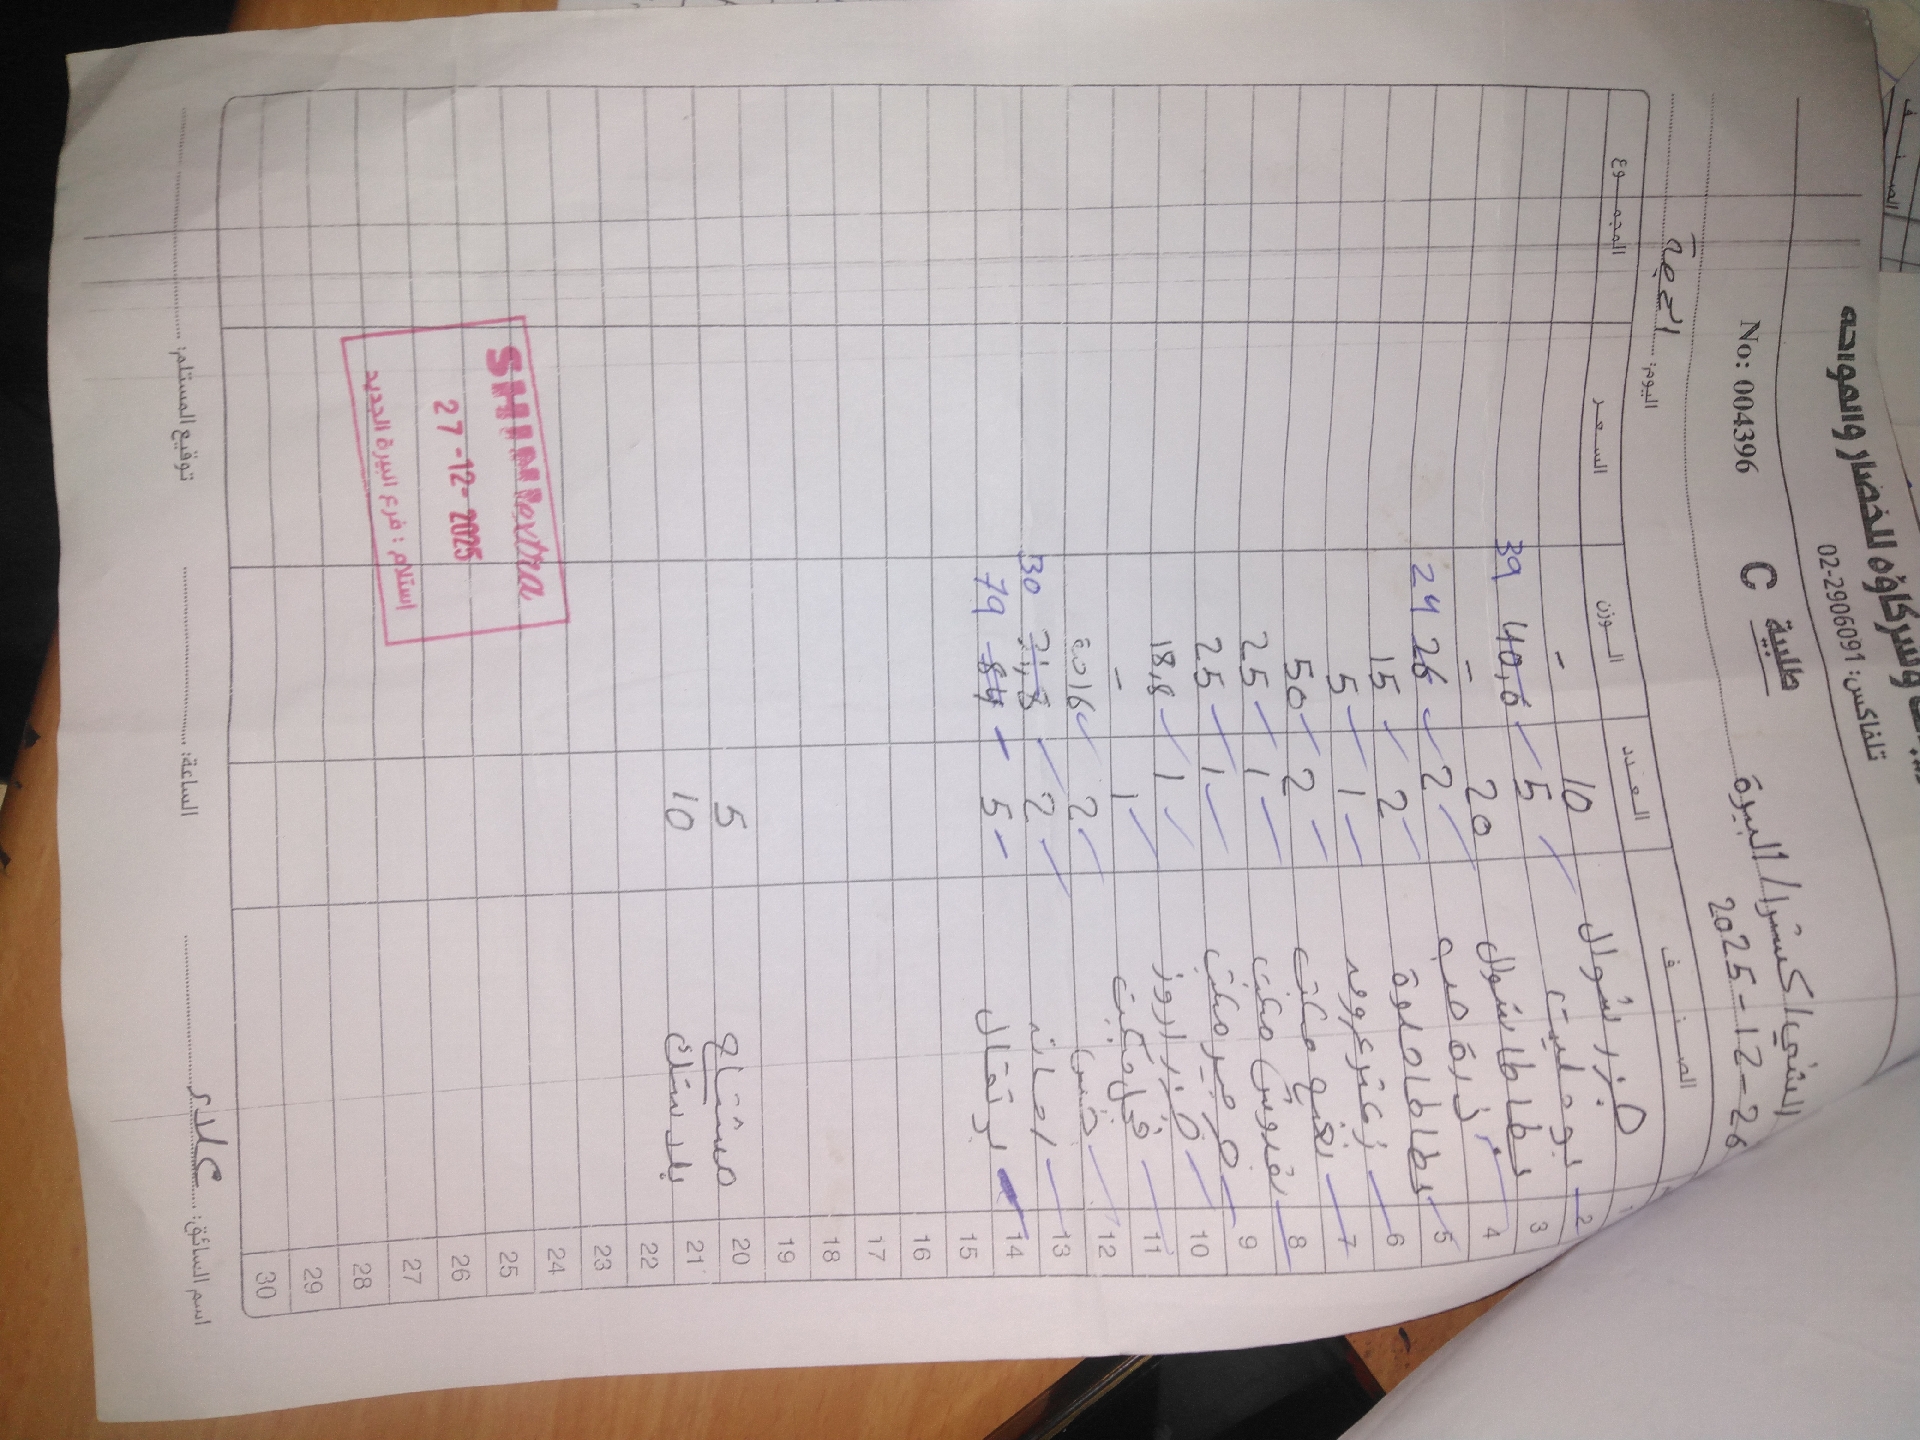 وشركاؤه للخضار والفواكه
تلفاكس: 02-2906091
No: 004396
طلبية C
الشني اكسترا / البيرة
2025-12-26
اليوم: الجمعة
الصنف العدد الوزن السعر المجموع
1 جزر شوال 10 -
2 بوملي 5 40,6 39
3 بطاطا شوال 20 -
4 ذرة حب 2 26 24
5 بطاطا حلوة 2 15
6 زعتر 1 5
7 نعنع مكتب 2 50
8 بقدونس مكتب 1 25
9 جرجير مكتب 1 25
10 1 18,8
11 فجل مكتب 1 -
12 خس 2 16 حبة
13 2 31,8 30
14 برتقال 5 84 79
15
16
17
18
19
20 مشتاح 5
21 بلاستك 10
22
23
24
25
26
27
28
29
30
SHINI extra
27-12-2025
استلام: فرع البيرة الجديد
اسم السائق: علاء الساعة: توقيع المستلم: